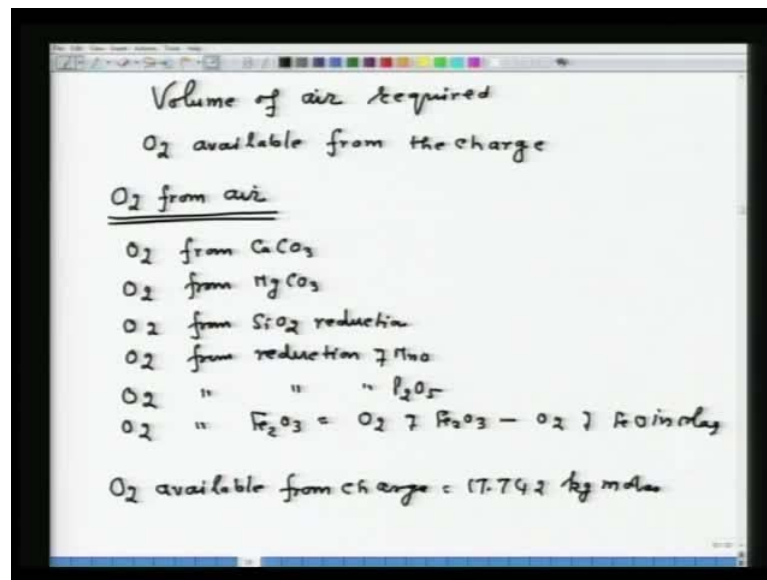 Volume of air required
O2 available from the charge
O2 from air
O2 from CaCO3
O2 from MgCO3
O2 from SiO2 reduction
O2 from reduction of MnO
O2 " " " P2O5
O2 " Fe2O3 = O2 of Fe2O3 - O2 of FeO in slag
O2 available from charge = 17.742 kg moles